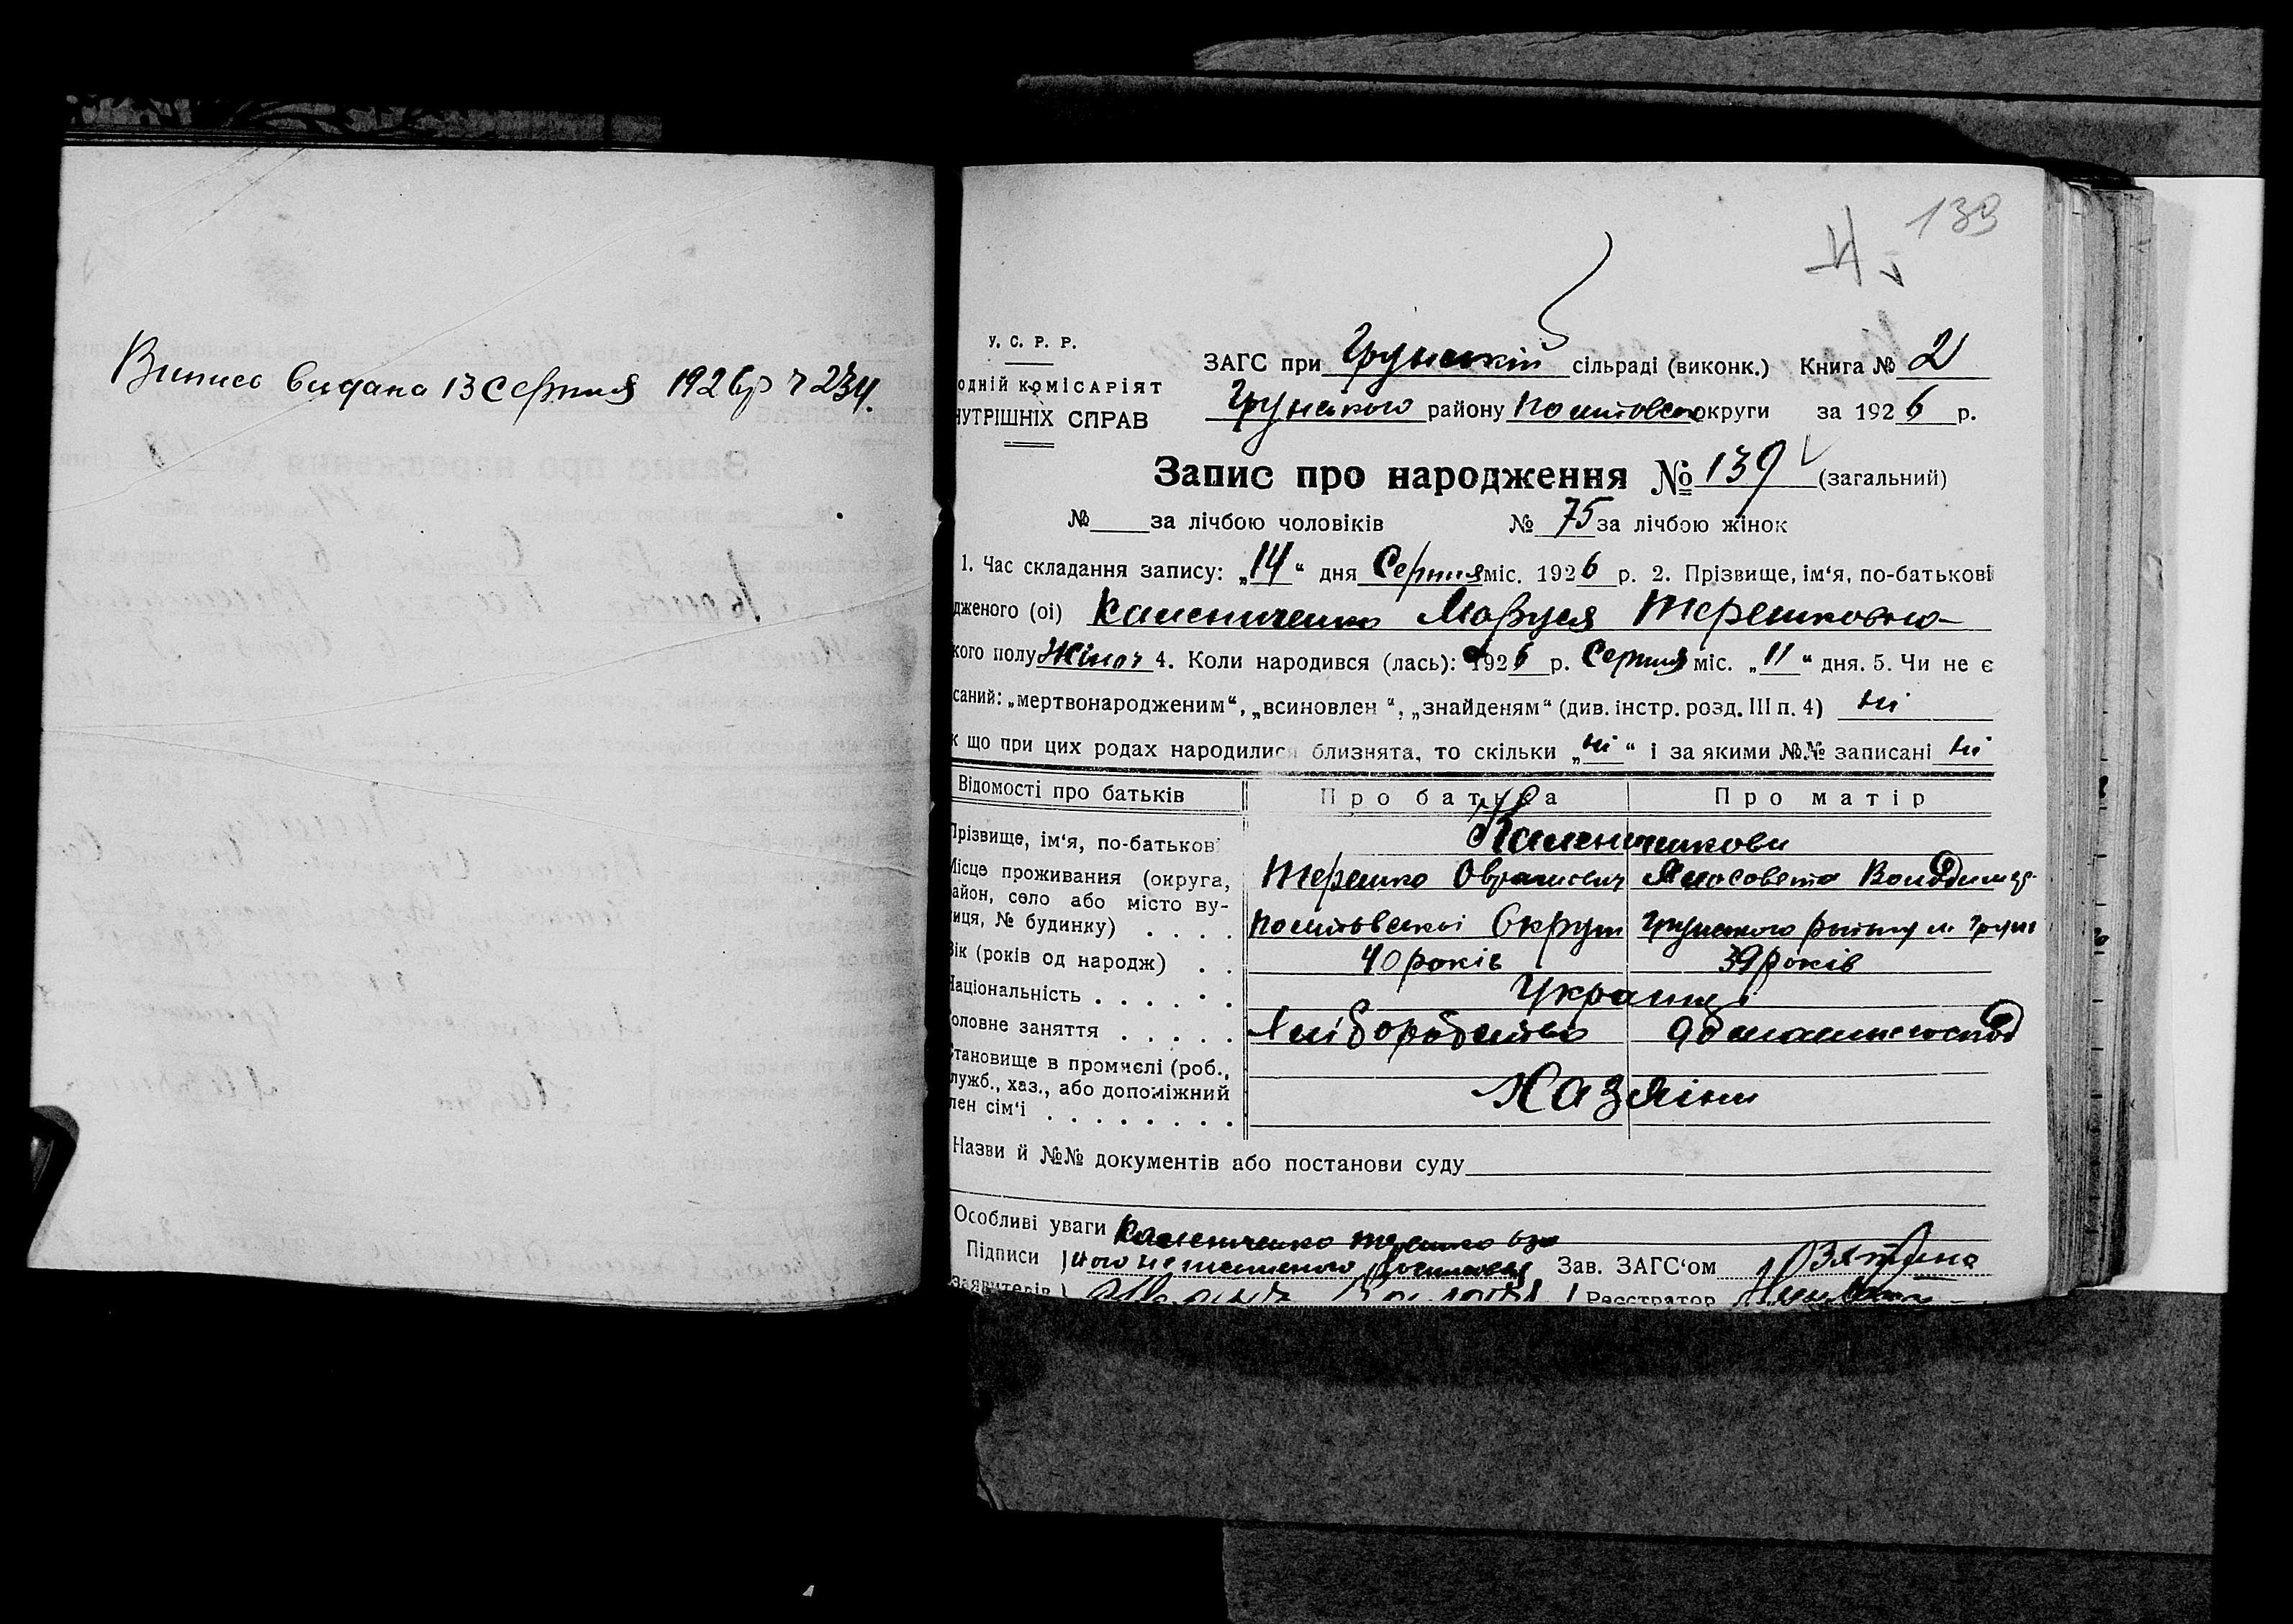 Випись видана 13 серпня 1926 р ч 234
139
У. С. Р. Р.
одній комісаріят
нутрішніх справ
ЗАГС при Грунській сільраді (виконк.) Книга № 2
Грунського району округи за 1926 р.
Запис про народження № 139 (загальний)
№ за лічбою чоловіків № 75 за лічбою жінок
1. Час складання запису: „14“ дня Серпня міс. 1926 р. 2. Прізвище, ім‘я, по-батькові
дженого (ої) Маруся Терешковна
кого полу Жіноч 4. Коли народився (лась): 1926 р. Серпня міс. „11“ дня. 5. Чи не є
саний: „мертвонародженим“, „всиновлен “, „знайденям“ (див. інстр. розд. III п. 4) ні
к що при цих родах народилися близнята, то скільки „ні“ і за якими №№ записані ні
Відомості про батьків Про батька Про матір
Прізвище, ім‘я, по-батькові
Місце проживання (округа, Терешко
район, село або місто ву-
лиця, № будинку) . . . . Округи Грунського району м. Грунь
Вік (років од народж) . . 40 років 39 років
Національність . . . . . . Українці
Головне заняття . . . . . Хліборобство домашнє господ
Становище в промислі (роб.,
служб., хаз., або допоміжний Хазяіни
лен сім‘і . . . . . . . .
Назви й №№ документів або постанови суду
Особливі уваги Терешко
Підписи неписьменого Зав. ЗАГС‘ом
заявителів Реєстратор